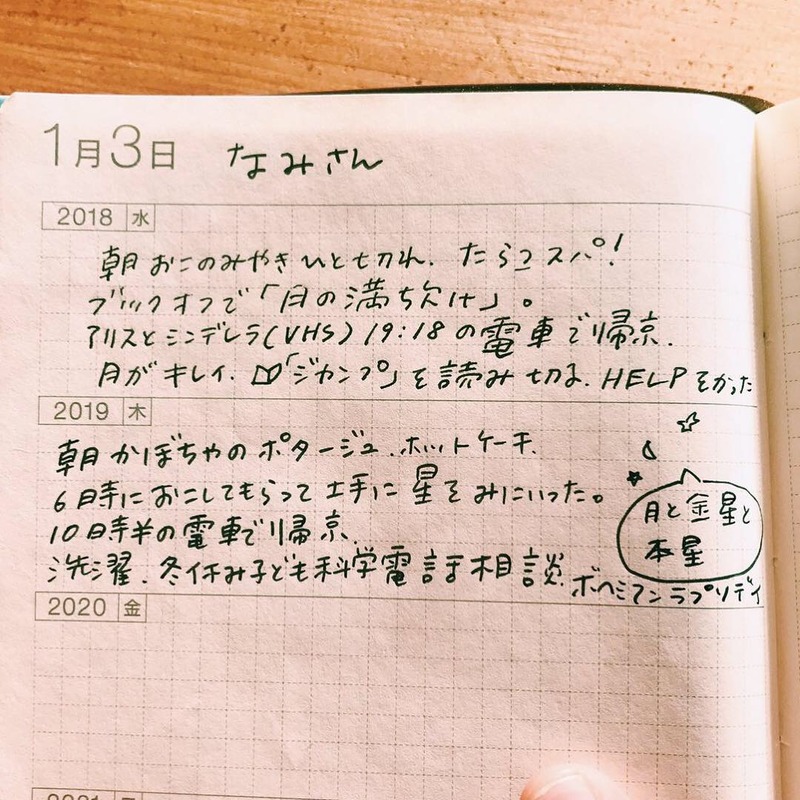 1月3日 なみさん
2018 水
朝 おこのみやき ひと切れ. たらこスパ!
ブックオフで「月の満ち欠け」。
アリスとシンデレラ(VHS) 19:18の電車で帰京.
月がキレイ. 「ジャンプ」を読み切る. HELPをかった
2019 木
朝 かぼちゃのポタージュ. ホットケーキ.
6時におこしてもらって土手に星をみにいった。
月と金星と
木星
10時半の電車で帰京.
洗濯. 冬休み子ども科学電話相談.
ボヘミアンラプソディ
2020 金